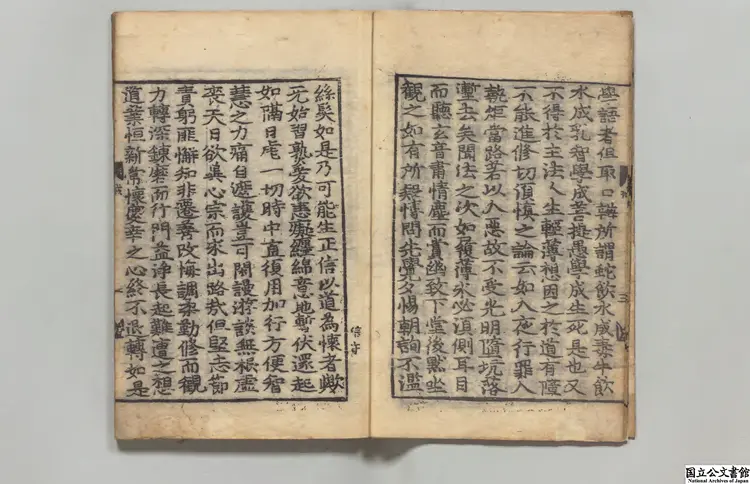 學語者但取口辦所謂蛇飲水成毒牛飲
水成乳智學成菩提愚學成生死是也又
不得於主法人生輕薄想因之於道有障
不能進修切須慎之論云如人夜行罪人
執炬當路若以人惡故不受光明墮坑落
塹去矣聞法之次如履薄氷必須側耳目
而聽玄音肅情塵而賞幽致下堂後黙坐
觀之如有所疑博問先覺夕惕朝詢不濫
絲髮如是乃可能生正信以道為懷者歟
无始習熟愛欲恚癡纏綿意地暫伏還起
如隔日虐一切時中直須用加行方便智
慧之力痛自遮護豈可閑謾遊談無根虛
喪天日欲冀心宗而求出路哉但堅志節
責躬匪懈知非遷善改悔調柔勤修而觀
力轉深鍊磨而行門益淨長起難遭之想
道業恒新常懷慶幸之心終不退轉如是
国立公文書館
National Archives of Japan